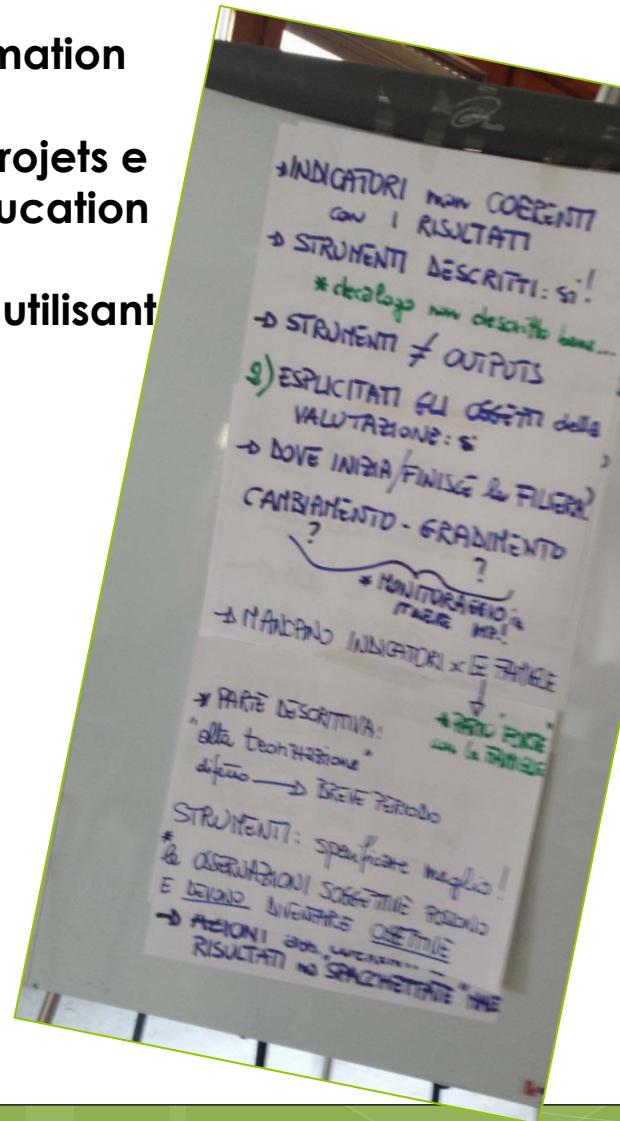 mation
rojets e
ucation
utilisant
→ INDICATORI non COERENTI
con I RISULTATI
→ STRUMENTI DESCRITTI: sì!
* decalogo non descritto bene...
→ STRUMENTI ≠ OUTPUTS
2) ESPLICITATI GLI OGGETTI della
VALUTAZIONE: sì
→ DOVE INIZIA/FINISCE la FILIERA?
CAMBIAMENTO - GRADIMENTO
? ?
* MONITORAGGIO, in
ITINERE
→ MANCANO INDICATORI x LE FAMIGLIE
* PARTE DESCRITTIVA:
* PATTO "FORTE"
con le FAMIGLIE
"alta teorizzazione"
difetto → BREVE PERIODO
STRUMENTI: specificare meglio!
* le OSSERVAZIONI SOGGETTIVE POSSONO
E DEVONO DIVENTARE OGGETTIVE
→ AZIONI
RISULTATI no SPACCHETTATE" MALE